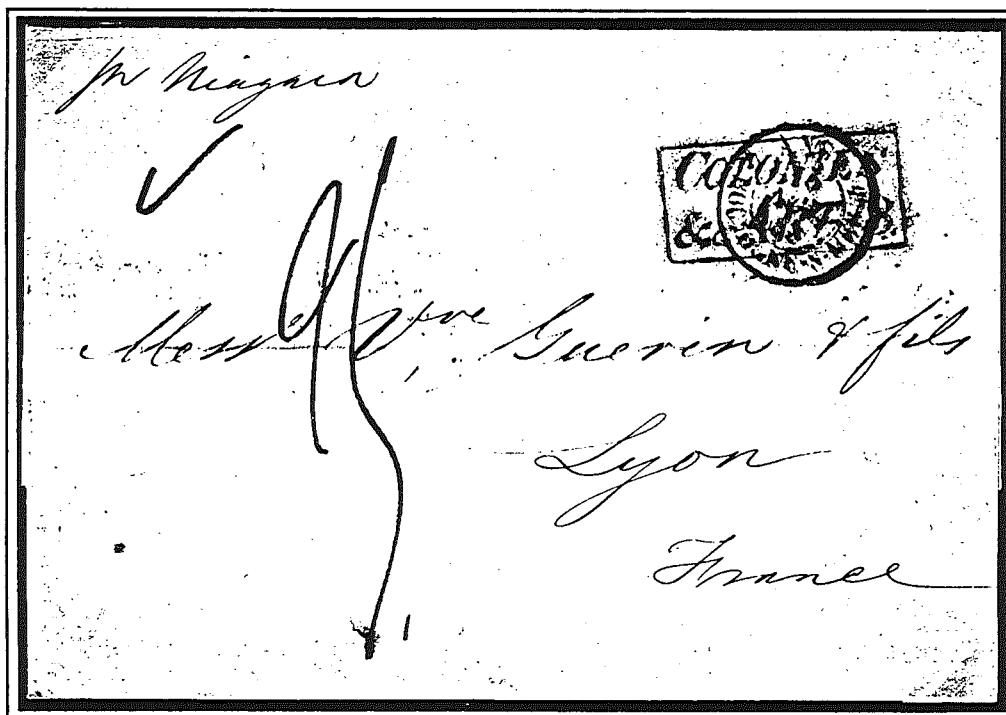 pr Niagara
COLONIES
&c. ART.
Mess rs Vve. Guerin & fils
Lyon
France